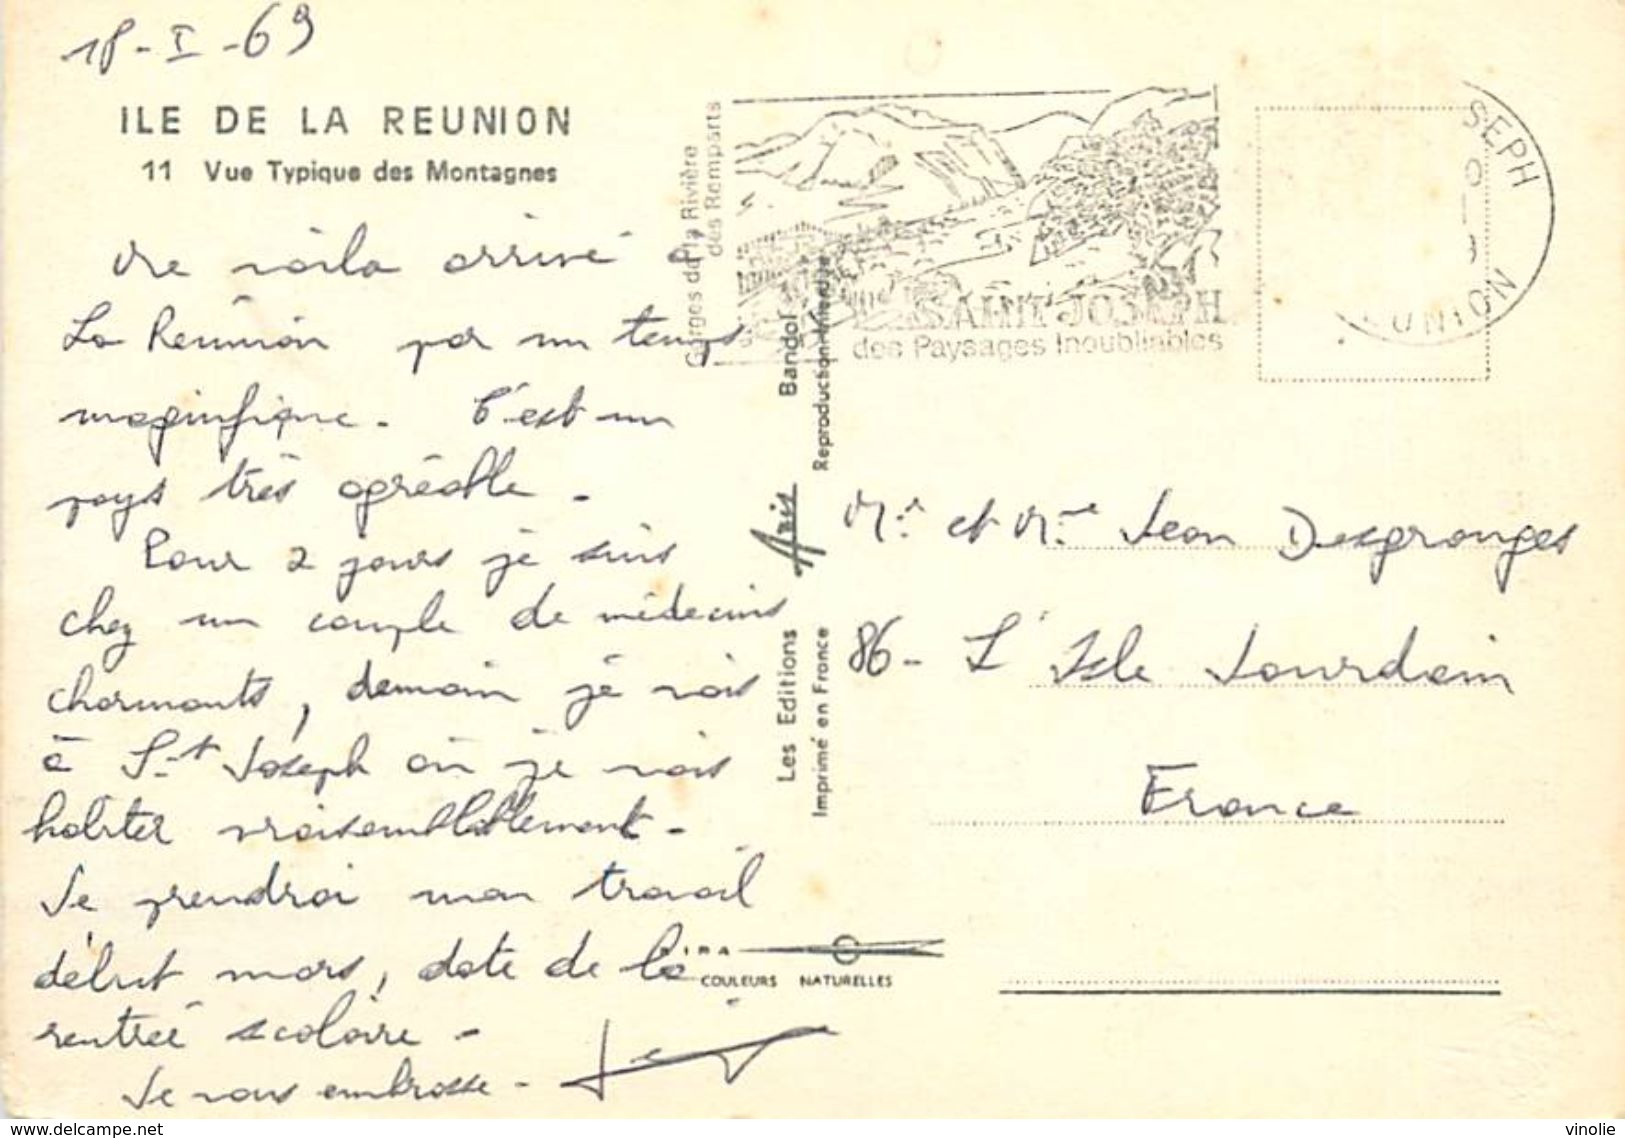 18-I-69
ILE DE LA REUNION
11 Vue Typique des Montagnes
Me voila arrivé à
La Réunion par un temps
magnifique. C'est un
pays très agréable.
Pour 2 jours je suis
chez un couple de médecins
charmants, demain je vais
à St Joseph où je vais
habiter vraisemblablement.
Je prendrai mon travail
début mars, date de la
rentrée scolaire.
Je vous embrasse.
Gorges de la Rivière
des Remparts
SAINT JOSEPH
des Paysages Inoubliables
SEPH
UNION
Les Editions Aris Bandol
Imprimé en France Reproduction interdite
COULEURS NATURELLES
Mr et Me Jean Desgranges
86- L'Isle Jourdain
France
www.delcampe.net
vinolie